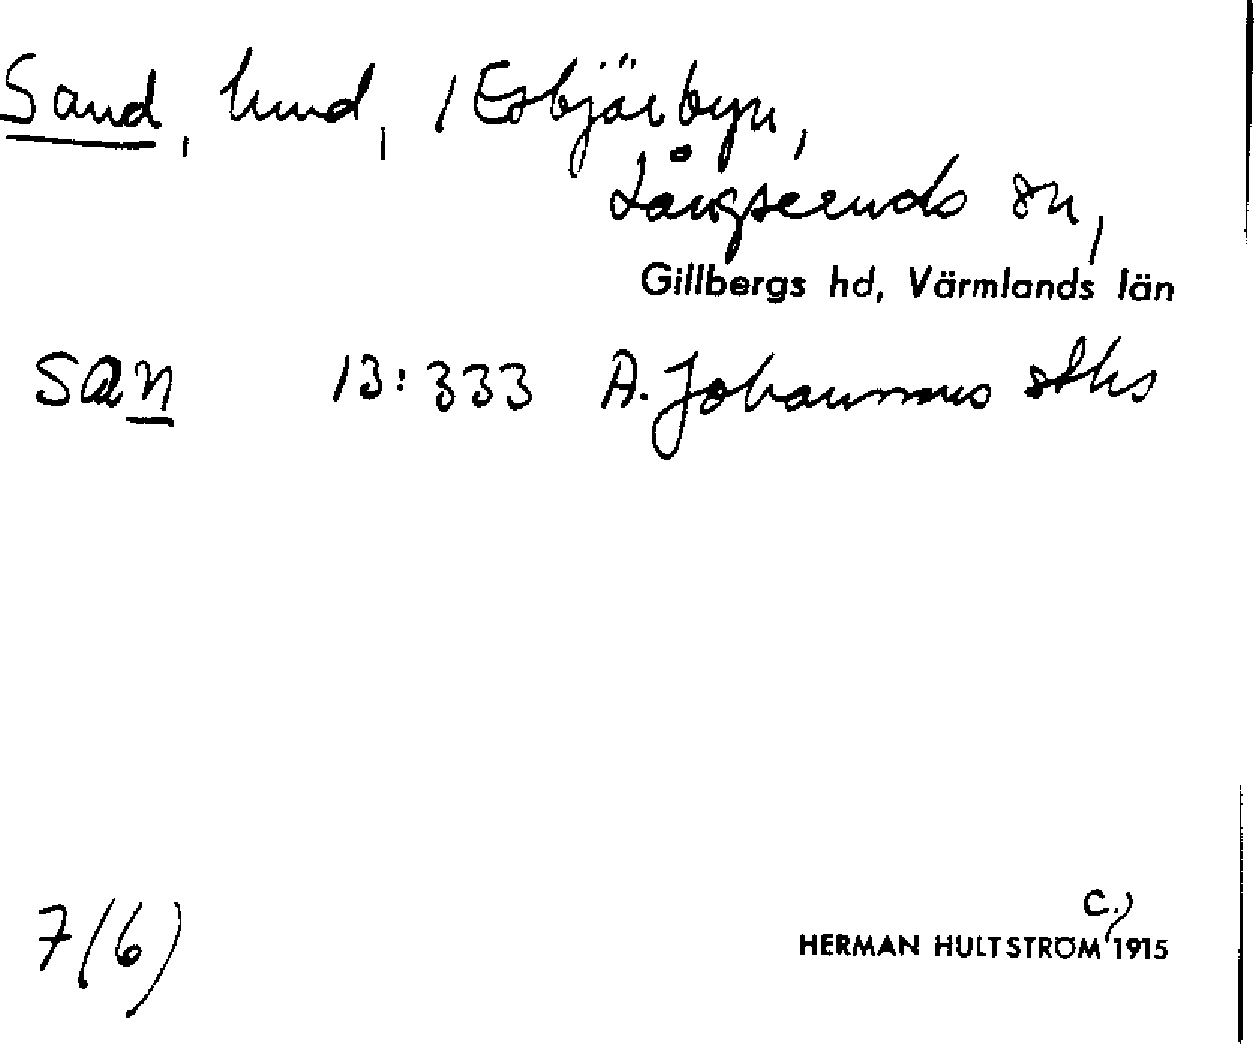 Sand, hmd, i Esbjörbyn,
Långseruds sn,
Gillbergs hd, Värmlands län
san 13:333 A. Johannes sths
7(6)
C.)
HERMAN HULTSTRÖM 1915